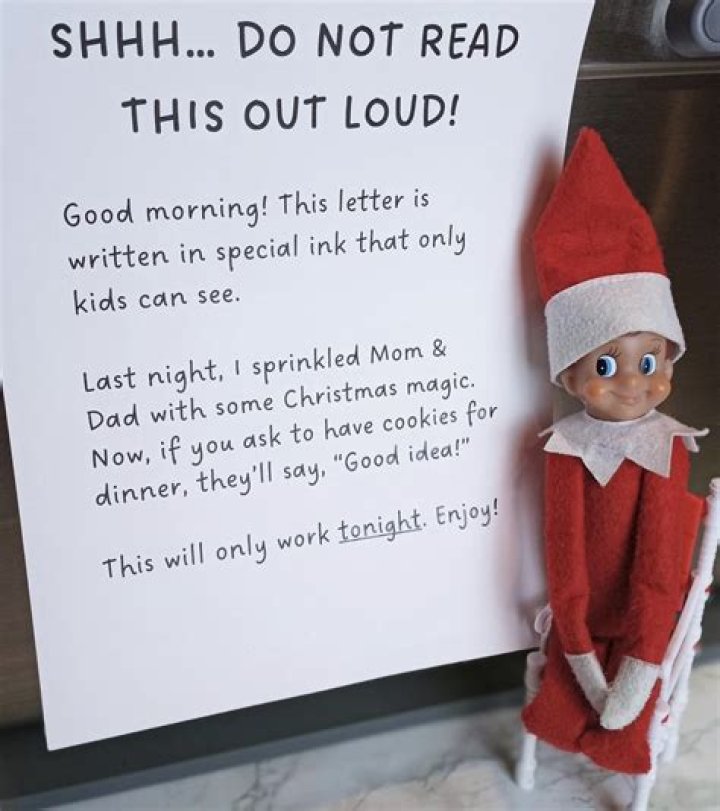 SHHH... DO NOT READ
THIS OUT LOUD!
Good morning! This letter is
written in special ink that only
kids can see.
Last night, I sprinkled Mom &
Dad with some Christmas magic.
Now, if you ask to have cookies for
dinner, they'll say, "Good idea!"
This will only work tonight. Enjoy!